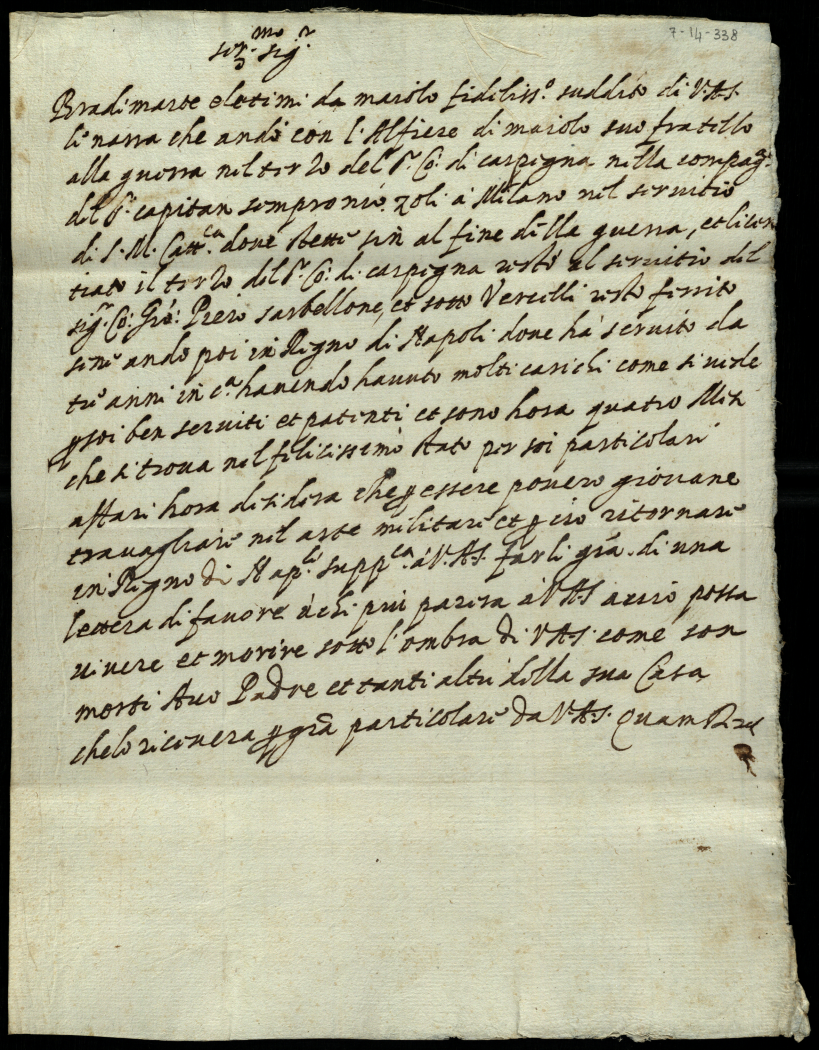 7-14-338
Ser.mo Sig.r
Bradimarte eletimi da maiolo fidiliss.o suddito di V.A.S.
li narra che andò con l'Alfiere di maiolo suo fratello
alla guerra nel terzo del S.r Co: di carpigna nella compag.a
del S.r capitan sempronio zoli à Milano nel servitio
di S. M. Catt.ca dove stette sin al fine della guerra, et licen
tiato il terzo del S.r Co: di carpigna restò al servitio del
sig.r Co: Gio: Piero sarbellone, et sotto Vercelli resto ferito
sene ando poi in Regno di Napoli dove hà servito da
tre anni in c.a havendo havuto molti carichi come si vede
p soi ben serviti et patenti et sono hora quatro Mesi
che si trova nel felicissimo stato per soi particolari
affari hora desidera che p essere povero giovane
travagliare nel arte militare et p ciò ritornare
in Regno di Nap.li supp.ca à V.A.S. farli gra. di una
lettera di favore à chi più parera à V.A.S. acciò possa
vivere et morire sotto l'ombra di V.A.S. come son
morti Avo Padre et tanti altri della sua Casa
che lo ricevera p gra particolare da V.A.S. Quam